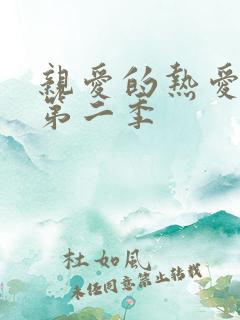 親愛的熱愛
第二季
杜如風
未經同意禁止轉載